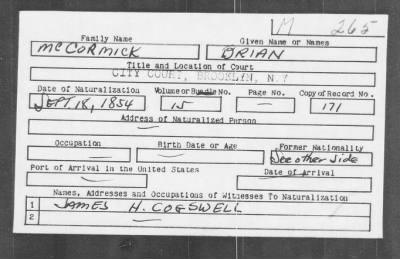 M 265
Family Name Given Name or Names
McCORMICK BRIAN
Title and Location of Court
CITY COURT, BROOKLYN, N.Y
Date of Naturalization Volume or Bundle No. Page No. Copy of Record No.
SEPT. 18, 1854 15 — 171
Address of Naturalized Person
Occupation Birth Date or Age Former Nationality
— — See other side
Port of Arrival in the United States Date of Arrival
— —
Names, Addresses and Occupations of Witnesses To Naturalization
1 JAMES H. COGSWELL
2 —